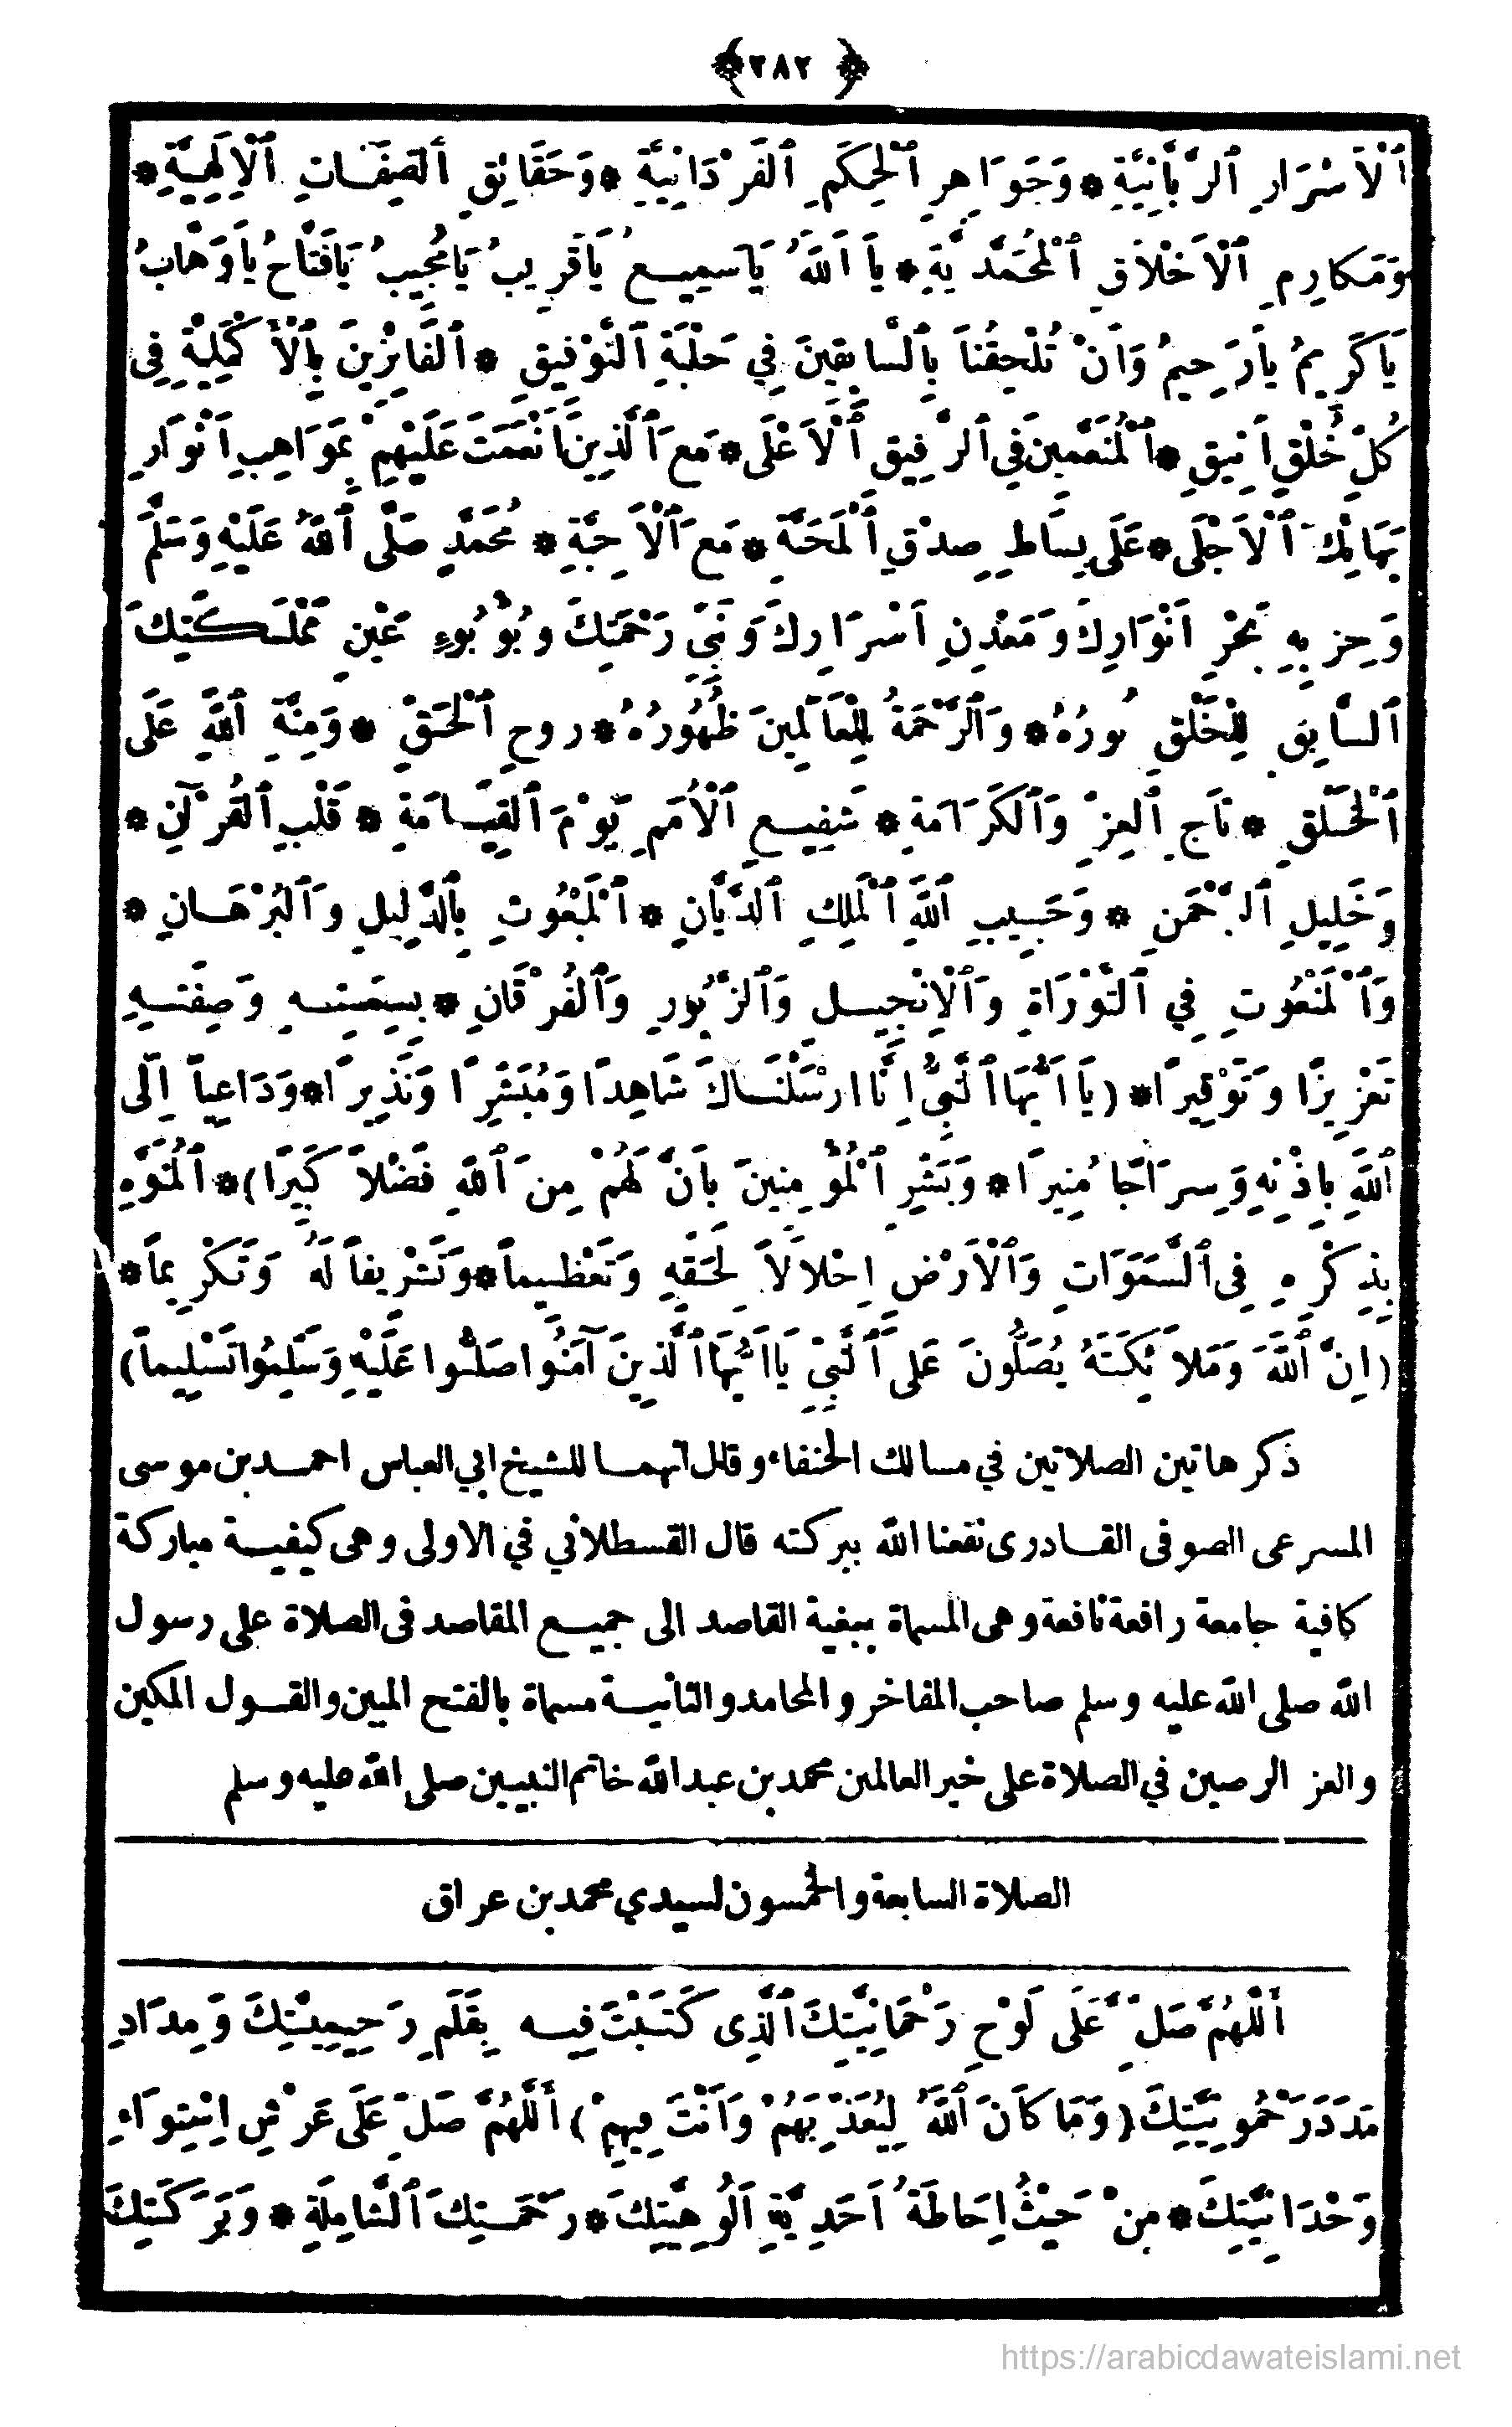 ﴿٢٨٢﴾
ٱلْأَسْرَارِ ٱلرَّبَّانِيَّةِ * وَجَوَاهِرِ ٱلْحِكَمِ ٱلْفَرْدَانِيَّةِ * وَحَقَائِقِ ٱلصِّفَاتِ ٱلْإِلَهِيَّةِ *
وَمَكَارِمِ ٱلْأَخْلَاقِ ٱلْمُحَمَّدِيَّةِ * يَا اَللهُ يَا سَمِيعُ يَا قَرِيبُ يَا مُجِيبُ يَا فَتَّاحُ يَا وَهَّابُ
يَا كَرِيمُ يَا رَحِيمُ وَاَنْ تُلْحِقَنَا بِٱلسَّابِقِينَ فِي حَلْبَةِ ٱلتَّوْفِيقِ * ٱلْفَائِزِينَ بِٱلْأَكْمَلِيَّةِ فِى
كُلِّ خُلْقٍ اَنِيقٍ * ٱلْمُنَعَّمِينَ فِي ٱلرَّفِيقِ ٱلْاَعْلَى * مَعَ ٱلَّذِينَ اَنْعَمْتَ عَلَيْهِمْ بِمَوَاهِبِ اَنْوَارِ
بَهَائِكَ ٱلْاَجْلَى * عَلَى بِسَاطِ صِدْقِ ٱلْمَحَبَّةِ * مَعَ ٱلْاَحِبَّةِ * مُحَمَّدٍ صَلَّى ٱللهُ عَلَيْهِ وَسَلَّمَ
وَحِزْبِهِ بَحْرِ اَنْوَارِكَ وَمَعْدِنِ اَسْرَارِكَ وَنَبِيِّ رَحْمَتِكَ وَبُؤْبُوءِ عَيْنِ مَمْلَكَتِكَ
ٱلسَّابِقِ لِلْخَلْقِ نُورُهُ * وَٱلرَّحْمَةُ لِلْعَالَمِينَ ظُهُورُهُ * رُوحِ ٱلْحَقِّ * وَمِنَّةِ ٱللهِ عَلَى
ٱلْخَلْقِ * تَاجِ ٱلْعِزِّ وَٱلْكَرَامَةِ * شَفِيعِ ٱلْأُمَمِ يَوْمَ ٱلْقِيَامَةِ * قَلْبِ ٱلْقُرْآنِ *
وَخَلِيلِ ٱلرَّحْمَنِ * وَحَبِيبِ ٱللهِ ٱلْمَلِكِ ٱلدَّيَّانِ * ٱلْمَبْعُوثِ بِٱلدَّلِيلِ وَٱلْبُرْهَانِ *
وَٱلْمَنْعُوتِ فِي ٱلتَّوْرَاةِ وَٱلْاِنْجِيلِ وَٱلزَّبُورِ وَٱلْفُرْقَانِ * بِسِمَتِهِ وَصِفَتِهِ
تَعْزِيزًا وَتَوْقِيرًا * (يَا اَيُّهَا ٱلنَّبِيُّ اِنَّا ارْسَلْنَاكَ شَاهِدًا وَمُبَشِّرًا وَنَذِيرًا * وَدَاعِياً اِلَى
ٱللهِ بِاِذْنِهِ وَسِرَاجًا مُنِيرًا * وَبَشِّرِ ٱلْمُؤْمِنِينَ بِاَنَّ لَهُمْ مِنَ ٱللهِ فَضْلاً كَبِيرًا) * ٱلْمُنَوَّهِ
بِذِكْرِهِ فِى ٱلسَّمَوَاتِ وَٱلْاَرْضِ اِجْلَالاً لِحَقِّهِ وَتَعْظِيماً * وَتَشْرِيفاً لَهُ وَتَكْرِيماً *
(اِنَّ ٱللهَ وَمَلَائِكَتَهُ يُصَلُّونَ عَلَى ٱلنَّبِيِّ يَا اَيُّهَا ٱلَّذِينَ آمَنُوا صَلُّوا عَلَيْهِ وَسَلِّمُوا تَسْلِيماً)
ذكر هاتين الصلاتين في مسالك الحنفاء وقال انهما للشيخ ابي العباس احمد بن موسى
المسرعى الصوفى القادرى نفعنا الله ببركته قال القسطلاني في الاولى وهى كيفية مباركة
كافية جامعة رافعة نافعة وهى المسماة ببغية القاصد الى جميع المقاصد فى الصلاة على رسول
الله صلى الله عليه وسلم صاحب المفاخر والمحامد والثانية مسماة بالفتح المبين والقول المكين
والعز الرصين في الصلاة على خير العالمين محمد بن عبدالله خاتم النبيين صلى الله عليه وسلم
الصلاة السابعة والخمسون لسيدي محمد بن عراق
أَللَّهُمَّ صَلِّ عَلَى لَوْحِ رَحْمَانِيَّتِكَ ٱلَّذِى كَتَبْتَ فِيهِ بِقَلَمِ رَحِيمِيَّتِكَ وَمِدَادِ
مَدَدِ رَحْمُوتِيَّتِكَ (وَمَا كَانَ ٱللهُ لِيُعَذِّبَهُمْ وَاَنْتَ فِيهِمْ) أَللَّهُمَّ صَلِّ عَلَى عَرْشِ اِسْتِوَاءِ
وَحْدَانِيَّتِكَ * مِنْ حَيْثُ اِحَاطَةُ اَحَدِيَّةِ اَلُوهِيَّتِكَ * رَحْمَتِكَ ٱلشَّامِلَةِ * وَبَرَكَتِكَ
https://arabicdawateislami.net